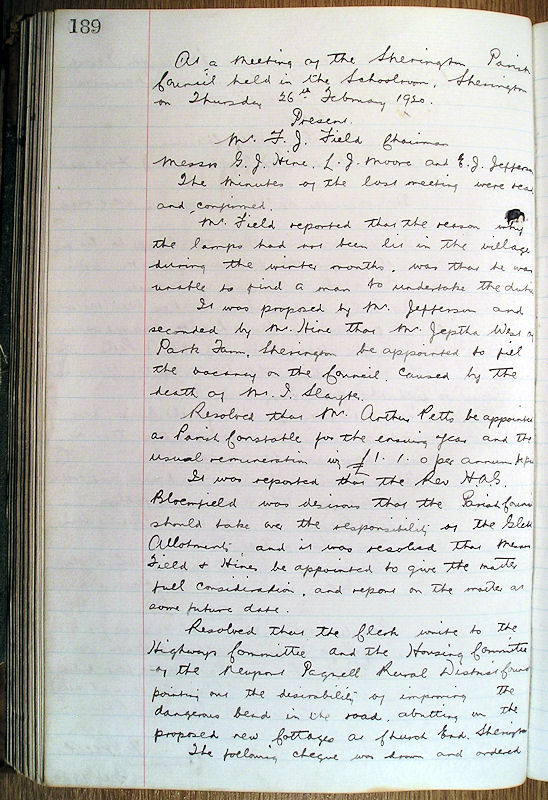 189
At a Meeting of the Sherington Parish
Council held in the Schoolroom, Sherington
on Thursday 26th February 1920.
Present.
Mr. F. J. Field Chairman
Messrs G. J. Hine, L. J. Moore and E. J. Jefferson
The Minutes of the last meeting were read
and confirmed.
Mr. Field reported that the reason why
the lamps had not been lit in the village
during the winter months, was that he was
unable to find a man to undertake the duties
It was proposed by Mr. Jefferson and
seconded by Mr. Hine that Mr. Jeptha West of
Park Farm, Sherington be appointed to fill
the vacancy on the Council, caused by the
death of Mr. I. Slayter.
Resolved that Mr. Arthur Petts be appointed
as Parish Constable for the ensuing year and the
usual remuneration viz £1. 1. 0 per annum
It was reported that the Rev H.A.S.
Bloomfield was desirous that the Parish Council
should take over the responsibility of the Glebe
Allotments, and it was resolved that Messrs
Field & Hine be appointed to give the matter
full consideration, and report on the matter at
some future date.
Resolved that the Clerk write to the
Highways Committee and the Housing Committee
of the Newport Pagnell Rural District Council
pointing out the desirability of improving the
dangerous bend in the road, abutting on the
proposed new Cottages at Church End, Sherington
The following cheque was drawn and ordered